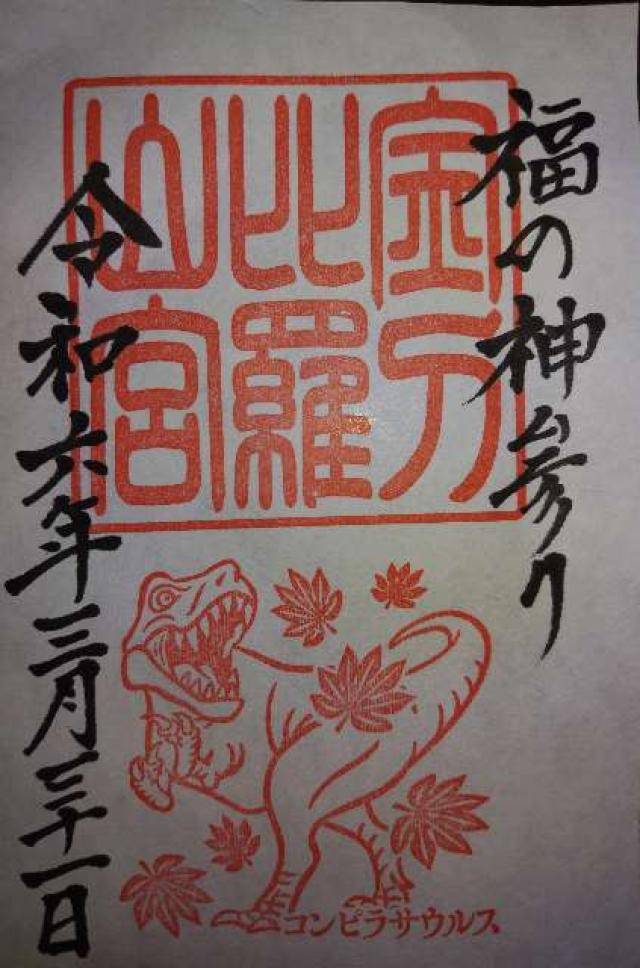 福の神参り
金刀
比羅
山宮
令和六年三月三十一日
コンピラサウルス